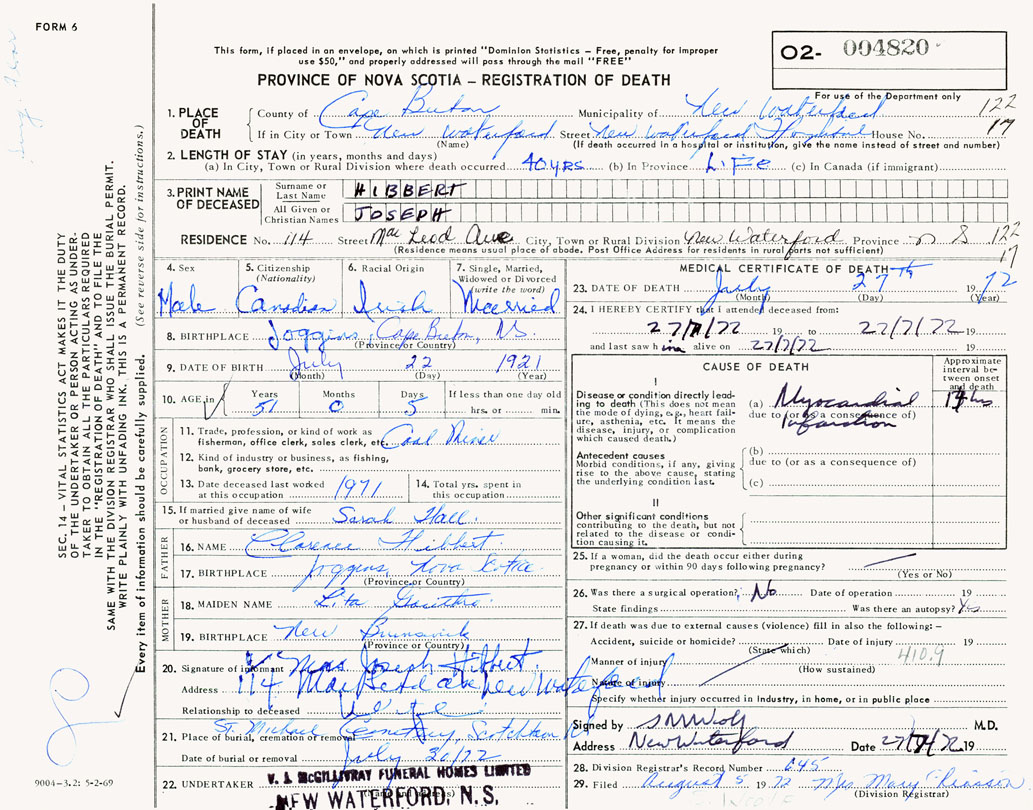 FORM 6
This form, if placed in an envelope, on which is printed "Dominion Statistics – Free, penalty for improper
use $50," and properly addressed will pass through the mail "FREE"
PROVINCE OF NOVA SCOTIA – REGISTRATION OF DEATH
02- 004820
For use of the Department only
1. PLACE OF DEATH
County of Cape Breton Municipality of New Waterford 122
If in City or Town New Waterford Street New Waterford Hospital House No. 17
(Name) (If death occurred in a hospital or institution, give the name instead of street and number)
2. LENGTH OF STAY (in years, months and days)
(a) In City, Town or Rural Division where death occurred 40 YRS (b) In Province LIFE (c) In Canada (if immigrant)
3. PRINT NAME OF DECEASED
Surname or Last Name HIBBERT
All Given or Christian Names JOSEPH
RESIDENCE No. 114 Street MacLeod Ave City, Town or Rural Division New Waterford Province N S 122
(Residence means usual place of abode. Post Office Address for residents in rural parts not sufficient) 17
4. Sex
Male
5. Citizenship (Nationality)
Canadian
6. Racial Origin
Irish
7. Single, Married, Widowed or Divorced (write the word)
Married
8. BIRTHPLACE Joggins, Cape Breton, NS
(Province or Country)
9. DATE OF BIRTH July 22 1921
(Month) (Day) (Year)
10. AGE in Years Months Days If less than one day old
51 0 5 hrs. or min.
OCCUPATION
11. Trade, profession, or kind of work as
fisherman, office clerk, sales clerk, etc. Coal Miner
12. Kind of industry or business, as fishing,
bank, grocery store, etc.
13. Date deceased last worked
at this occupation 1971
14. Total yrs. spent in
this occupation
15. If married give name of wife
or husband of deceased Sarah Hall.
FATHER
16. NAME Clarence Hibbert
17. BIRTHPLACE Joggins, Nova Scotia
(Province or Country)
MOTHER
18. MAIDEN NAME Lita
19. BIRTHPLACE New Brunswick
(Province or Country)
20. Signature of informant Mrs Joseph Hibbert.
Address 114 MacLeod Ave New Waterford
Relationship to deceased Wife
21. Place of burial, cremation or removal St. Michael Cemetery,
Date of burial or removal July 30/72
22. UNDERTAKER V. J. McGILLIVRAY FUNERAL HOMES LIMITED
(Name and address)
NEW WATERFORD, N.S.
MEDICAL CERTIFICATE OF DEATH
23. DATE OF DEATH July 27th 1972
(Month) (Day) (Year)
24. I HEREBY CERTIFY that I attended deceased from:
27/7/72 19 to 27/7/72 19
and last saw him alive on 27/7/72 19
CAUSE OF DEATH
Approximate interval between onset and death
I
Disease or condition directly leading to death (This does not
mean the mode of dying, e.g., heart failure, asthenia, etc. It means the
disease, injury, or complication
which caused death.)
(a) Myocardial
due to (or as a consequence of)
Infarction
hrs
Antecedent causes
Morbid conditions, if any, giving
rise to the above cause, stating
the underlying condition last.
(b)
due to (or as a consequence of)
(c)
II
Other significant conditions
contributing to the death, but not
related to the disease or condition causing it.
25. If a woman, did the death occur either during
pregnancy or within 90 days following pregnancy?
(Yes or No)
26. Was there a surgical operation? No Date of operation 19
State findings Was there an autopsy? Yes
27. If death was due to external causes (violence) fill in also the following: –
Accident, suicide or homicide? Date of injury 19
(State which) 410.9
Manner of injury
(How sustained)
Nature of injury
Specify whether injury occurred in Industry, in home, or in public place
Signed by M.D.
Address New Waterford Date 27/7/72 19
28. Division Registrar's Record Number 645
29. Filed August 5 1972 Mrs Mary
(Division Registrar)
SEC. 14 – VITAL STATISTICS ACT MAKES IT THE DUTY
OF THE UNDERTAKER OR PERSON ACTING AS UNDER-
TAKER TO OBTAIN ALL THE PARTICULARS REQUIRED
IN THE "REGISTRATION OF DEATH" AND TO FILE THE
SAME WITH THE DIVISION REGISTRAR WHO SHALL ISSUE THE BURIAL PERMIT.
WRITE PLAINLY WITH UNFADING INK. THIS IS A PERMANENT RECORD.
Every item of information should be carefully supplied. (See reverse side for instructions.)
9004-3.2: 5-2-69